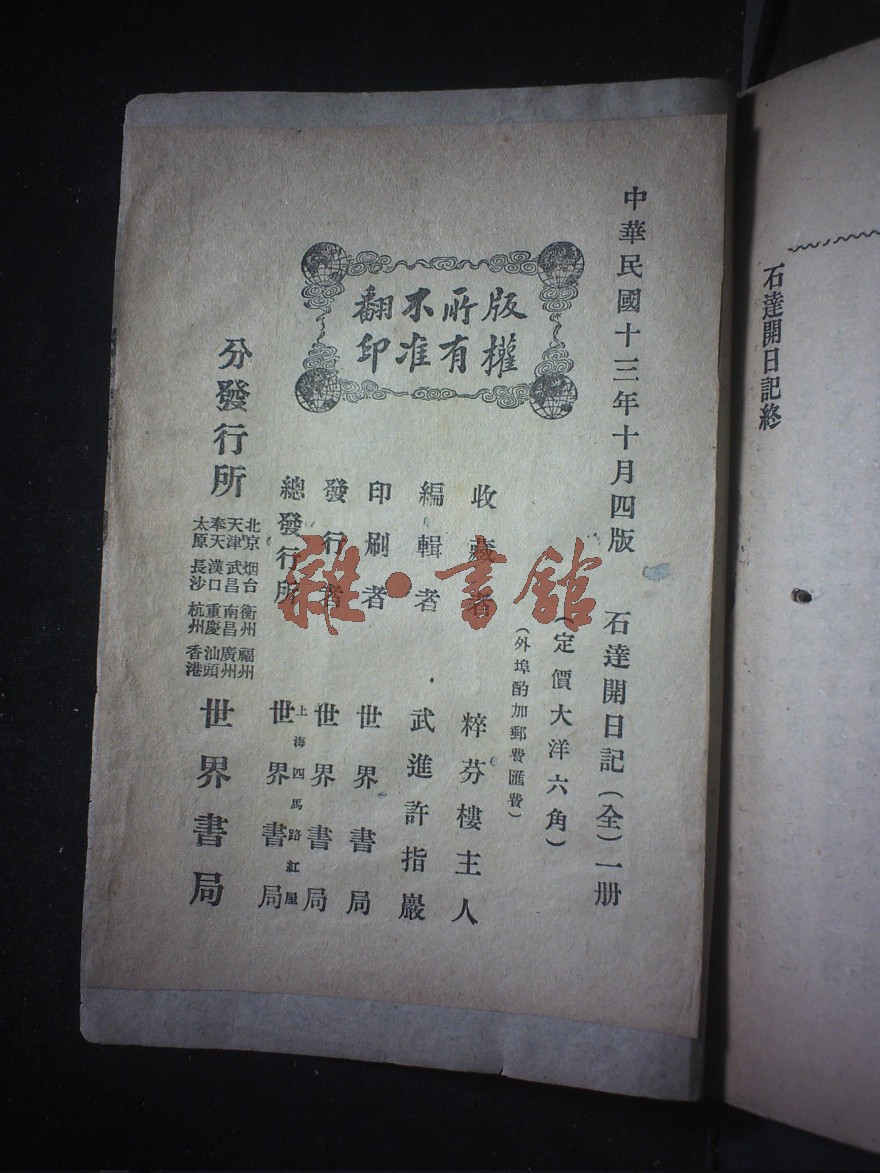 石達開日記終
中華民國十三年十月四版
石達開日記(全)一册
(定價大洋六角)
(外埠酌加郵費匯費)
版權
所有
不准
翻印
收藏者 粹芬樓主人
編輯者 武進許指嚴
印刷者 世界書局
發行者 世界書局
總發行所 上海四馬路紅屋 世界書局
分發行所
北京 烟台 衡州 福州
天津 武昌 南昌 廣州
奉天 漢口 重慶 汕頭
太原 長沙 杭州 香港
世界書局
雜·書館